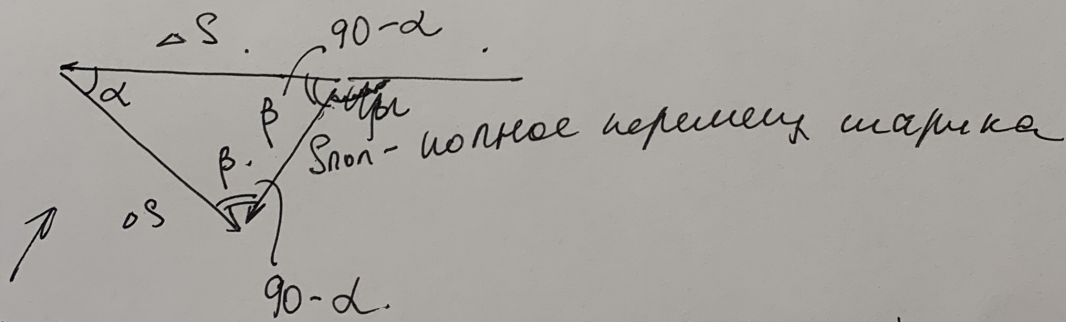 ΔS 90-α
α
β
β
Sпол - полное перемещ шарика
ΔS
90-α.